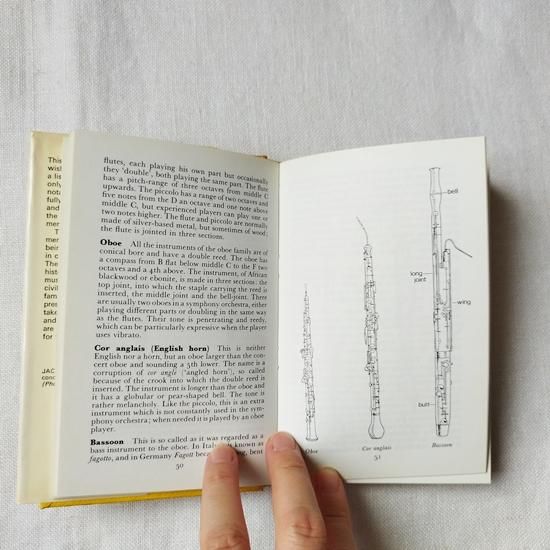 This
wish
a lis
only
nota
fully
and
men
T
men
bein
in c
The
hist
mus
civil
fam
pres
take
and
are
for
JAC
conc
(Pho
flutes, each playing his own part but occasionally
they 'double', both playing the same part. The flute
has a pitch-range of three octaves from middle C
upwards. The piccolo has a range of two octaves and
five notes from the D an octave and one note above
middle C, but experienced players can play one or
two notes higher. The flute and piccolo are normally
made of silver-based metal, but sometimes of wood;
the flute is jointed in three sections.
Oboe All the instruments of the oboe family are of
conical bore and have a double reed. The oboe has
a compass from B flat below middle C to the F two
octaves and a 4th above. The instrument, of African
blackwood or ebonite, is made in three sections: the
top joint, into which the staple carrying the reed is
inserted, the middle joint and the bell-joint. There
are usually two oboes in a symphony orchestra, either
playing different parts or doubling in the same way
as the flutes. Their tone is penetrating and reedy,
which can be particularly expressive when the player
uses vibrato.
Cor anglais (English horn) This is neither
English nor a horn, but an oboe larger than the con-
cert oboe and sounding a 5th lower. The name is a
corruption of cor anglé ('angled horn'), so called
because of the crook into which the double reed is
inserted. The instrument is longer than the oboe and
it has a globular or pear-shaped bell. The tone is
rather melancholy. Like the piccolo, this is an extra
instrument which is not constantly used in the sym-
phony orchestra; when needed it is played by an oboe
player.
Bassoon This is so called as it was regarded as a
bass instrument to the oboe. In Italy known as
fagotto, and in Germany Fagott bec bent
50
bell
long
joint
wing
butt
Oboe
Cor anglais
Bassoon
51